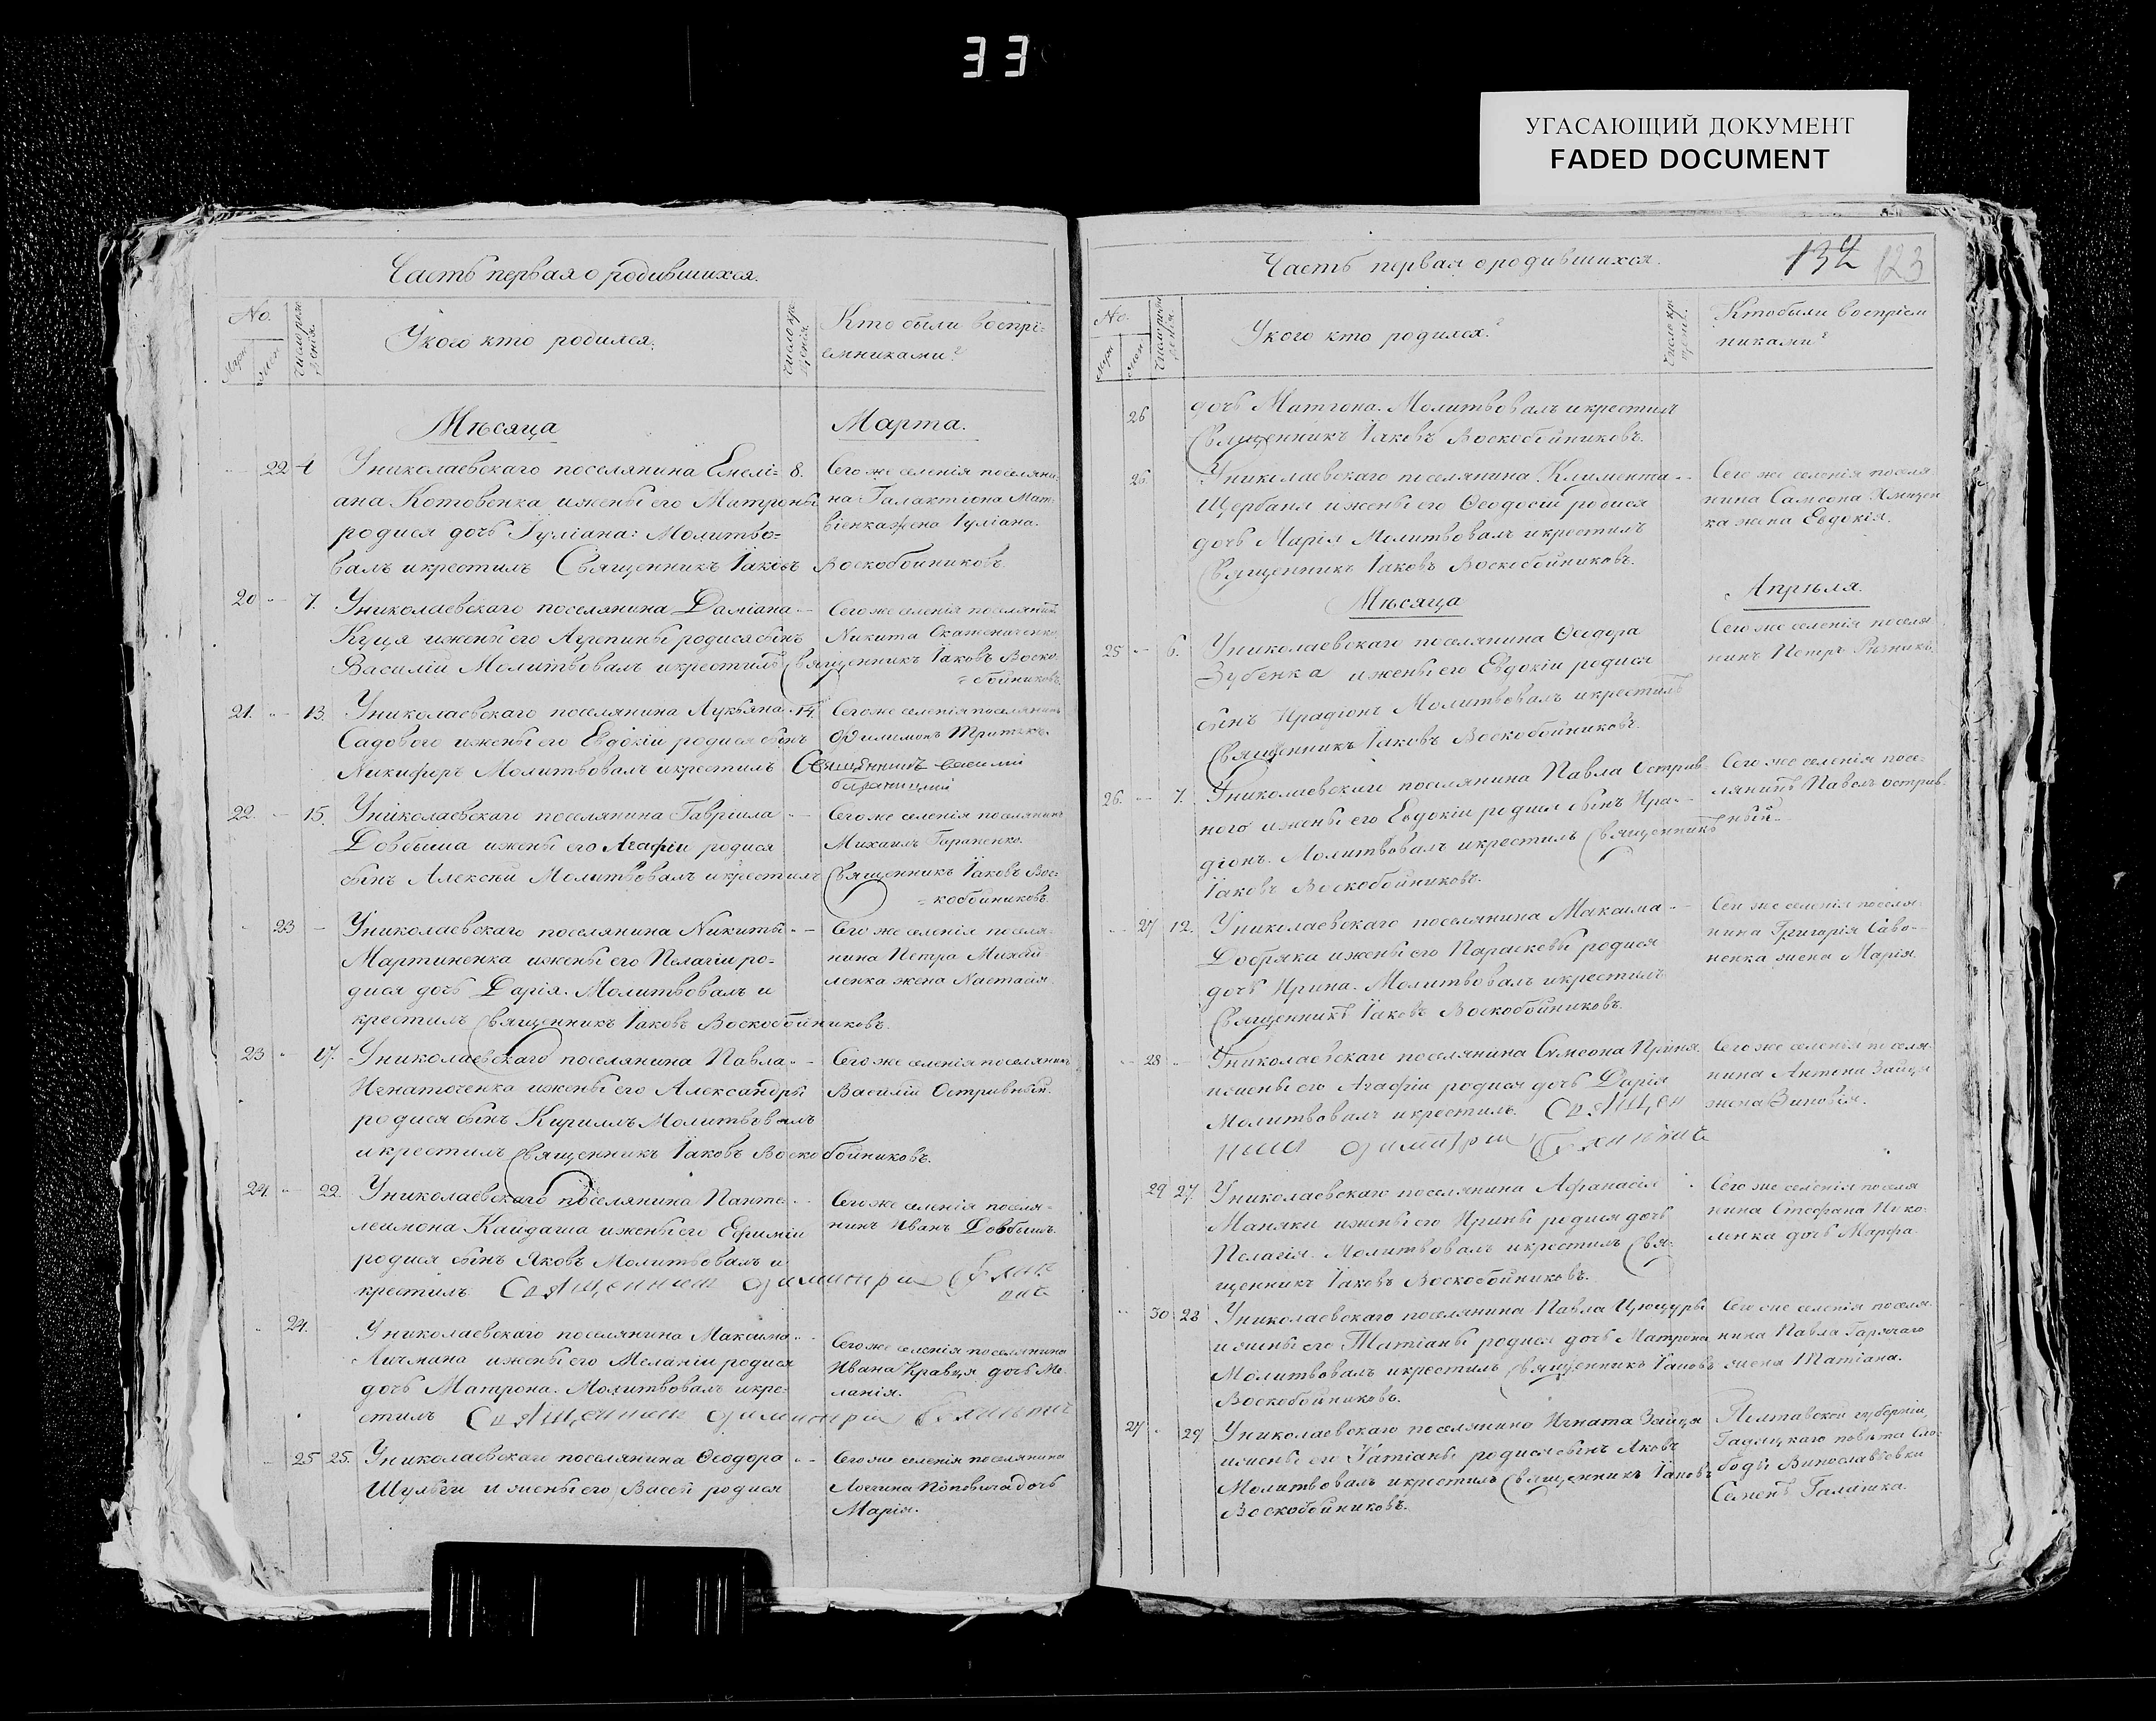 33
УГАСАЮЩИЙ ДОКУМЕНТ
FADED DOCUMENT
Часть первая о родившихся.
No.
Муж.
Жен.
Число рож
денія.
У кого кто родился.
Число кре
щенія.
Кто были воспрі-
емниками?
Мѣсяца Марта.
22 4 У николаевскаго поселянина Емелі- 8. Сего же селенія поселяни
ана Котовенка и жены его Матроны на Галактіона Мат
родися дочь Іуліана: Молитво- віенка жена Іуліана.
валъ и крестилъ Священникъ Іаковъ Воскобойниковъ.
20 7. У николаевскаго поселянина Даміана Сего же селенія поселянинъ
Куця и жены его Агрепины родися сынъ Никита
Василій Молитвовалъ и крестилъ Священникъ Іаковъ Воско-
бойниковъ.
21. 13. У николаевскаго поселянина Лукьяна 14. Сего же селенія поселянинъ
Садового и жены его Евдокіи родися сынъ Филимонъ
Никифоръ Молитвовалъ и крестилъ Священникъ Василій
22. 15. У николаевскаго поселянина Гавріила Сего же селенія поселянинъ
Довбыша и жены его Агафіи родися Михаилъ Гараненко.
сынъ Алексѣй Молитвовалъ и крестилъ Священникъ Іаковъ Вос-
кобойниковъ.
23 У николаевскаго поселянина Никиты Сего же селенія поселя-
Мартиненка и жены его Пелагіи ро- нина Петра
дися дочь Дарія. Молитвовалъ и ленка жена Настасія.
крестилъ Священникъ Іаковъ Воскобойниковъ.
23 17. У николаевскаго поселянина Павла Сего же селенія поселянинъ
Игнаточенка и жены его Александры Василій Остривный.
родися сынъ Кирилъ Молитвовалъ
и крестилъ Священникъ Іаковъ Воскобойниковъ.
24. 22. У николаевскаго поселянина Панте- Сего же селенія поселя-
леимона Кайдаша и жены его Ефиміи нинъ Иванъ Довбышъ.
родися сынъ Яковъ Молитвовалъ и
крестилъ Священникъ Димитрій
24. У николаевскаго поселянина Максима Сего же селенія поселянина
Личмана и жены его Меланіи родися Ивана Кравця дочь Ме-
дочь Матрона. Молитвовалъ и кре- ланія.
стилъ Священникъ Димитрій
25 25. У николаевскаго поселянина Ѳеодора Сего же селенія поселянина
Шульги и жены его Вассы родися Поповича дочь
Марія.
Часть первая о родившихся.
132 123
No.
Муж.
Жен.
Число рож
денія.
У кого кто родился?
Число кре
щенія.
Кто были воспріем
никами?
26 дочь Матрона. Молитвовалъ и крестилъ
Священникъ Іаковъ Воскобойниковъ.
26. У николаевскаго поселянина Климента Сего же селенія поселя
Щербаня и жены его Ѳеодосіи родися нина Самсона
дочь Марія Молитвовалъ и крестилъ ка жена Евдокія.
Священникъ Іаковъ Воскобойниковъ.
Мѣсяца Апрѣля.
25 6. У николаевскаго поселянина Ѳеодора Сего же селенія поселя
Зубенка и жены его Евдокіи родися нинъ Петръ Рѣзникъ.
сынъ Ирадіонъ Молитвовалъ и крестилъ
Священникъ Іаковъ Воскобойниковъ.
26. 7. У николаевскаго поселянина Павла Острив- Сего же селенія посе-
ного и жены его Евдокіи родися сынъ Ира- лянинъ Павелъ острив
діонъ. Молитвовалъ и крестилъ Священникъ ный
Іаковъ Воскобойниковъ.
27 12. У николаевскаго поселянина Максима Сего же селенія поселя-
Добряка и жены его Парасковы родися нина Григорія Саво-
дочь Ирина. Молитвовалъ и крестилъ ненка жена Марія.
Священникъ Іаковъ Воскобойниковъ.
28 У николаевскаго поселянина Симеона Сего же селенія поселя-
и жены его Агафіи родися дочь Дарія нина Антона Зайця
Молитвовалъ и крестилъ. Священ жена Зиновія.
никъ Димитрій
29 27. У николаевскаго поселянина Афанасія Сего же селенія поселя
Маняки и жены его Ирины родися дочь нина Стефана
Пелагія. Молитвовалъ и крестилъ Свя- дочь Марфа
щенникъ Іаковъ Воскобойниковъ.
30 28 У николаевскаго поселянина Павла Цюцюры Сего же селенія поселя-
и жены его Татіаны родися дочь Матрона нина Павла Гарячаго
Молитвовалъ и крестилъ Священникъ Іаковъ жена Татіана.
Воскобойниковъ.
27 29 У николаевскаго поселянина Игната Зайця Полтавской губерніи,
и жены его Татіаны родися сынъ Яковъ Гадяцкаго повѣта Сло-
Молитвовалъ и крестилъ Священникъ Іаковъ боды
Воскобойниковъ. Семенъ Галушка.